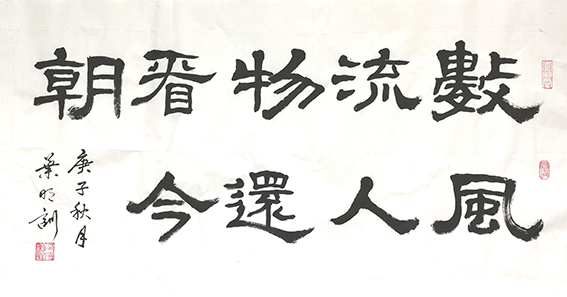 數風
流人
物還
看今
朝
庚子秋月
葉明訓